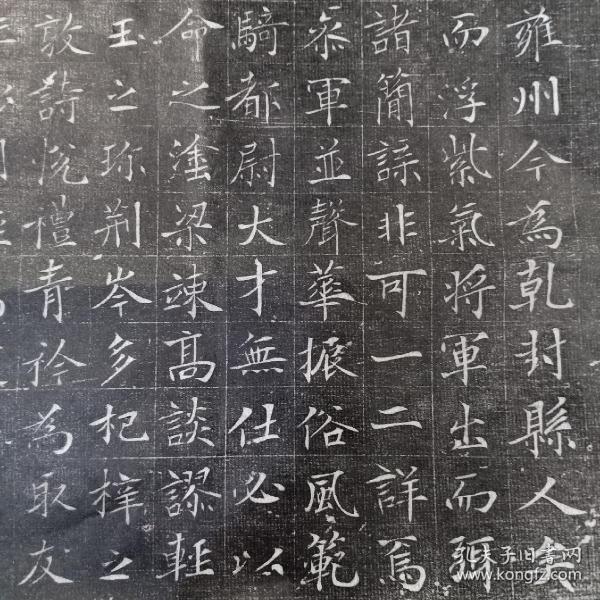 雍州今為乾封縣人矣
而浮紫氣將軍出而珥
諸簡諜非可一二詳焉
叅軍並聲華振俗風範
騎都尉大才無仕必以
命之塗梁竦高談謬輕
玉之珎荆岑多杞梓之
敦詩悅禮青衿為取友
孔夫子旧书网
www.kongfz.com